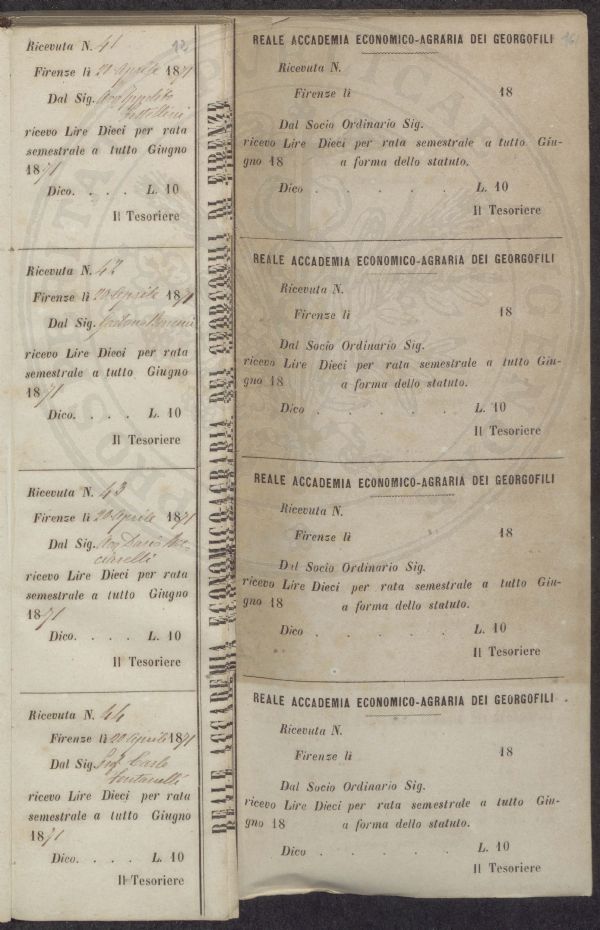 12
Ricevuta N. 41
Firenze lì 20 Aprile 1871
Dal Sig. Avv Ippolito
ricevo Lire Dieci per rata
semestrale a tutto Giugno
1871
Dico. . . . L. 10
Il Tesoriere
Ricevuta N. 42
Firenze lì 20 Aprile 1871
Dal Sig. Gaetano
ricevo Lire Dieci per rata
semestrale a tutto Giugno
1871
Dico. . . . L. 10
Il Tesoriere
Ricevuta N. 43
Firenze lì 20 Aprile 1871
Dal Sig. Avv
ricevo Lire Dieci per rata
semestrale a tutto Giugno
1871
Dico. . . . L. 10
Il Tesoriere
Ricevuta N. 44
Firenze lì 20 Aprile 1871
Dal Sig. Prof. Carlo
Fontanelli
ricevo Lire Dieci per rata
semestrale a tutto Giugno
1871
Dico. . . . L. 10
Il Tesoriere
REALE ACCADEMIA ECONOMICO-AGRARIA DEI GEORGOFILI DI FIRENZE
REALE ACCADEMIA ECONOMICO-AGRARIA DEI GEORGOFILI
Ricevuta N.
Firenze lì 18
Dal Socio Ordinario Sig.
ricevo Lire Dieci per rata semestrale a tutto Giu-
gno 18 a forma dello statuto.
Dico . . . . L. 10
Il Tesoriere
REALE ACCADEMIA ECONOMICO-AGRARIA DEI GEORGOFILI
Ricevuta N.
Firenze lì 18
Dal Socio Ordinario Sig.
ricevo Lire Dieci per rata semestrale a tutto Giu-
gno 18 a forma dello statuto.
Dico . . . . L. 10
Il Tesoriere
REALE ACCADEMIA ECONOMICO-AGRARIA DEI GEORGOFILI
Ricevuta N.
Firenze lì 18
Dal Socio Ordinario Sig.
ricevo Lire Dieci per rata semestrale a tutto Giu-
gno 18 a forma dello statuto.
Dico . . . . L. 10
Il Tesoriere
REALE ACCADEMIA ECONOMICO-AGRARIA DEI GEORGOFILI
Ricevuta N.
Firenze lì 18
Dal Socio Ordinario Sig.
ricevo Lire Dieci per rata semestrale a tutto Giu-
gno 18 a forma dello statuto.
Dico . . . . L. 10
Il Tesoriere